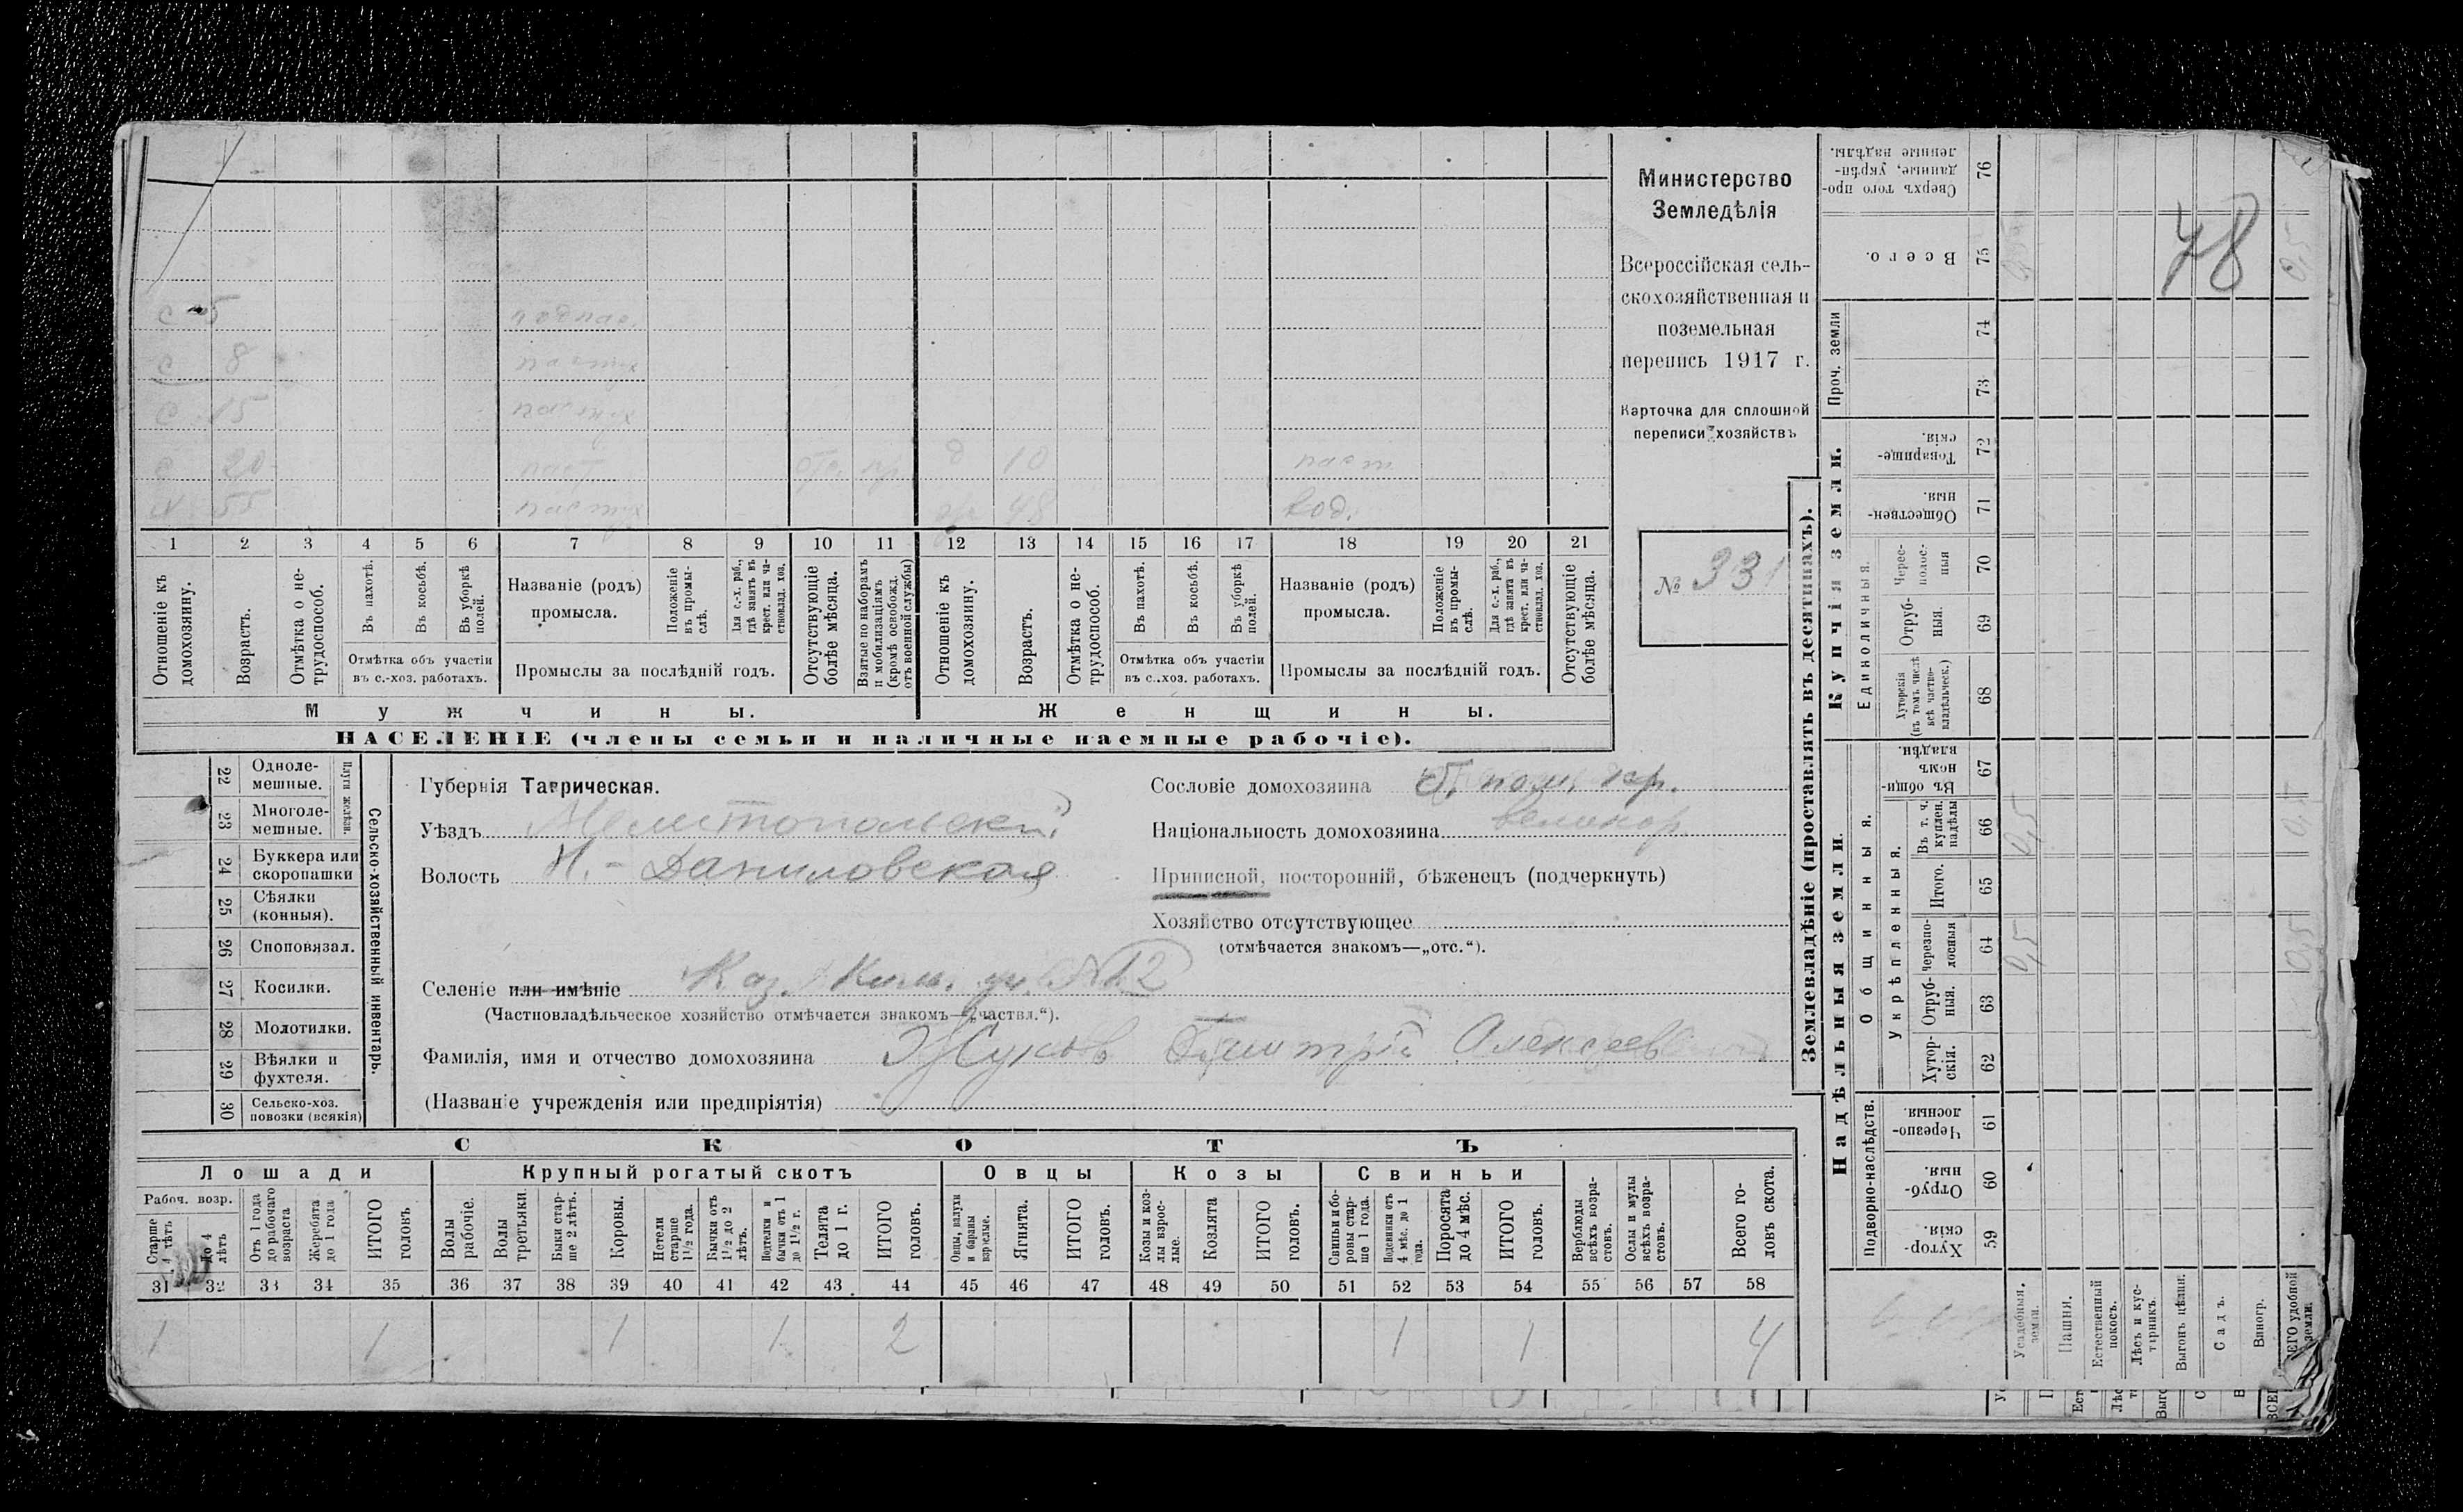 Министерство
Земледѣлія
Всероссійская сель-
скохозяйственная и
поземельная
перепись 1917 г.
Карточка для сплошной
переписи хозяйствъ
№ 331
78
с 5
с 8 пастух
с 15 пастух
с 20 паст. отс. пр д 10 паст.
х. 55 пастух 48
1 2 3 4 5 6 7 8 9 10 11 12 13 14 15 16 17 18 19 20 21
Отношеніе къ домохозяину.
Возрастъ.
Отмѣтка о не-трудоспособ.
Въ пахотѣ.
Въ косьбѣ.
Въ уборкѣ полей.
Отмѣтка объ участіи
въ с.-хоз. работахъ.
Названіе (родъ)
промысла.
Положеніе въ промы-слѣ.
Для с.-х. раб., гдѣ занятъ въ крест. или ча-стновлад. хоз.
Промыслы за послѣдній годъ.
Отсутствующіе болѣе мѣсяца.
Взятые по наборамъ и мобилизаціямъ (кромѣ освобожд. отъ военной службы)
Отношеніе къ домохозяину.
Возрастъ.
Отмѣтка о не-трудоспособ.
Въ пахотѣ.
Въ косьбѣ.
Въ уборкѣ полей.
Отмѣтка объ участіи
въ с.-хоз. работахъ.
Названіе (родъ)
промысла.
Положеніе въ промы-слѣ.
Для с.-х. раб., гдѣ занятъ въ крест. или ча-стновлад. хоз.
Промыслы за послѣдній годъ.
Отсутствующіе болѣе мѣсяца.
Мужчины. Женщины.
НАСЕЛЕНІЕ (члены семьи и наличные наемные рабочіе).
22 Одноле-мешные.
23 Многоле-мешные.
Плуги желѣзн.
24 Буккера или скоропашки
25 Сѣялки (конныя).
26 Сноповязал.
27 Косилки.
28 Молотилки.
29 Вѣялки и фухтеля.
30 Сельско-хоз. повозки (всякія)
Сельско-хозяйственный инвентарь.
Губернія Таврическая.
Уѣздъ Мелитопольскій
Волость Н.-Даниловская
Селеніе или имѣніе Каз. Ким. уч. №12
(Частновладѣльческое хозяйство отмѣчается знакомъ—„частвл.“).
Фамилія, имя и отчество домохозяина Жуковъ Дмитрій Алексеев
(Названіе учрежденія или предпріятія)
Сословіе домохозяина кр.
Національность домохозяина великор
Приписной, посторонній, бѣженецъ (подчеркнуть)
Хозяйство отсутствующее
(отмѣчается знакомъ—„отс.“).
СКОТЪ
Лошади Крупный рогатый скотъ Овцы Козы Свиньи
Рабоч. возр.
Старше 4 лѣтъ
До 4 лѣтъ
Отъ 1 года до рабочаго возраста
Жеребята до 1 года
ИТОГО головъ.
Волы рабочіе.
Волы третьяки.
Быки стар-ше 2 лѣтъ.
Коровы.
Нетели старше 1½ года.
Бычки отъ 1½ до 2 лѣтъ.
Подтелки и бычки отъ 1 до 1½ г.
Телята до 1 г.
ИТОГО головъ.
Овцы, валухи и бараны взрослые.
Ягнята.
ИТОГО головъ.
Козы и коз-лы взрос-лые.
Козлята
ИТОГО головъ.
Свиньи и бо-ровы стар-ше 1 года.
Подсвинки отъ 4 мѣс. до 1 года.
Поросята до 4 мѣс.
ИТОГО головъ.
Верблюды всѣхъ возра-стовъ.
Ослы и мулы всѣхъ возра-стовъ.
Всего го-ловъ скота.
31 32 33 34 35 36 37 38 39 40 41 42 43 44 45 46 47 48 49 50 51 52 53 54 55 56 57 58
1 1 1 1 2 1 1 4
Землевладѣніе (проставлять въ десятинахъ).
Надѣльныя земли.
Купчія земли.
Проч. земли
Подворно-наслѣдств.
Общинныя.
Укрѣпленныя.
Единоличныя.
Хутор-скія. 59
Отруб-ныя. 60
Черезпо-лосныя. 61
Хутор-скія. 62
Отруб-ныя. 63
Черезпо-лосныя 64
Итого. 65
Въ т. ч. куплен. надѣлы 66
Въ общи-номъ владѣн. 67
Хуторскія (въ томъ числѣ всѣ частно-владѣльческ.) 68
Отруб-ныя. 69
Черес-полос-ныя 70
Обществен-ныя. 71
Товарище-скія. 72
73
74
Всего. 75
Сверхъ того про-данные, укрѣп-ленные надѣлы. 76
Усадебныя. земли.
Пашня.
Естественный покосъ.
Лѣсъ и кус-тарникъ.
Выгонъ цѣлин.
Садъ.
Виногр.
ВСЕГО удобной земли.
0,5
0,5
0,5
0,5
0,5
0,5